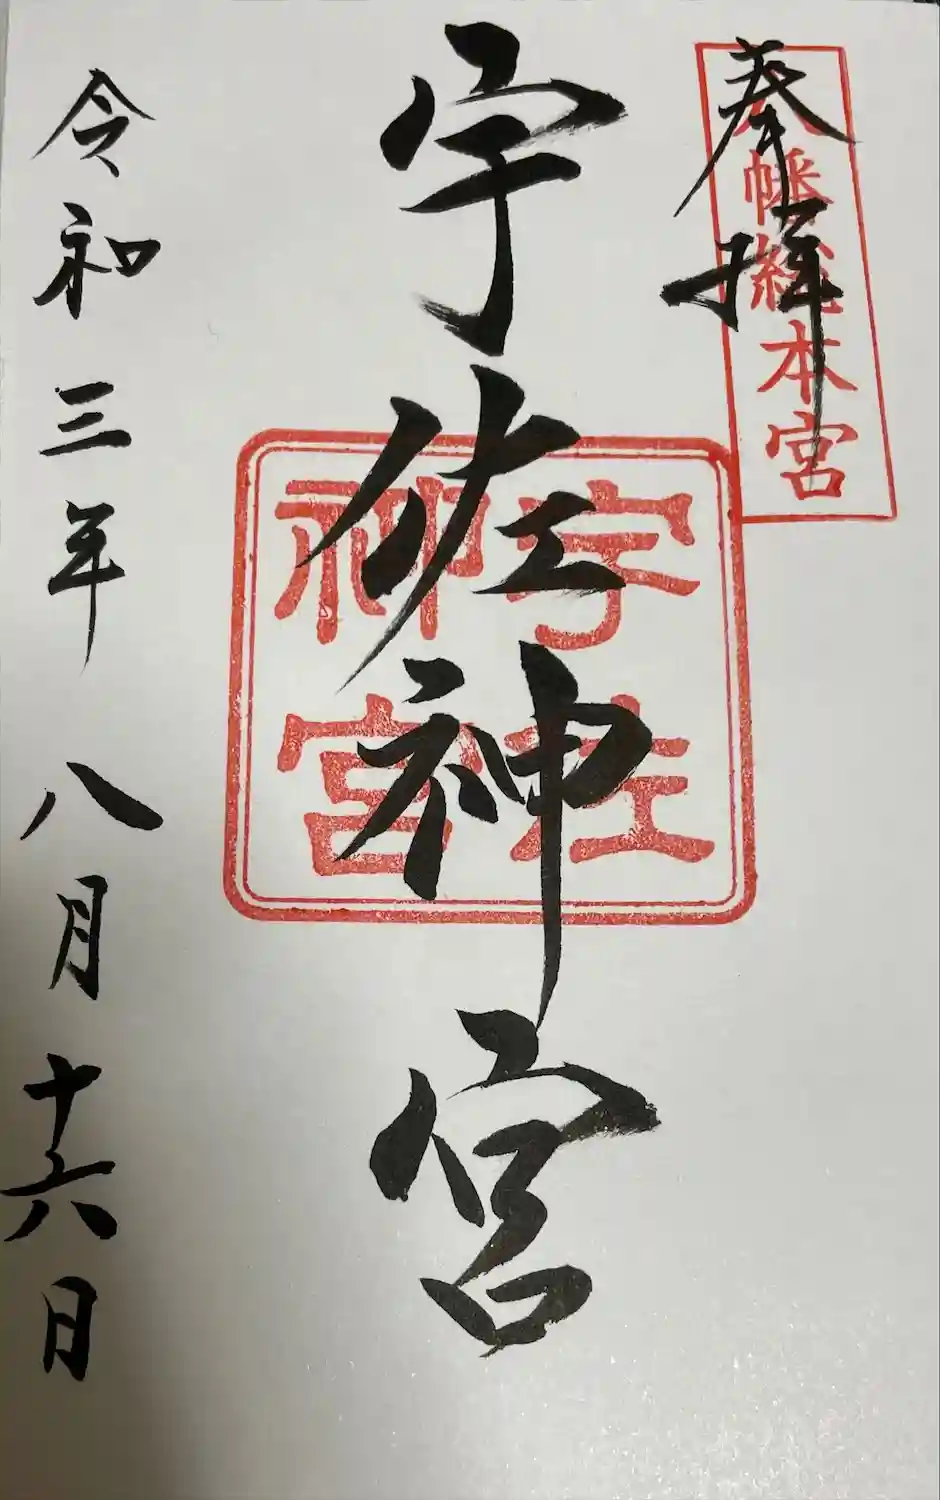 奉拝
八幡総本宮
宇佐神宮
宇佐
神宮
令和三年 八月十六日